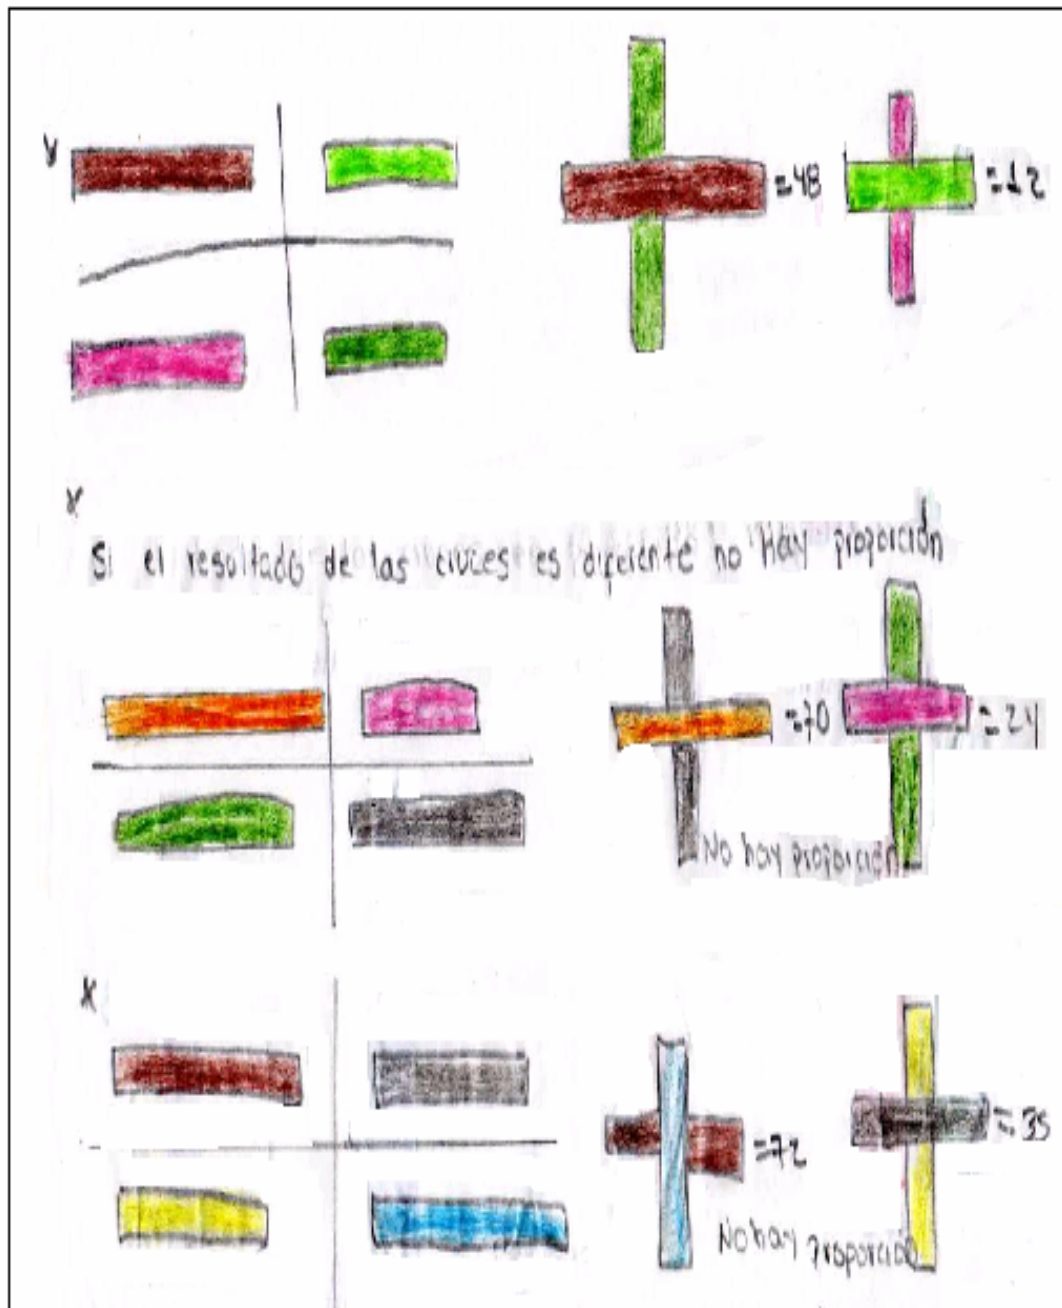 =48
=12
Si el resultado de las cruces es diferente no Hay proporción
=70
=24
No hay proporción
=72
=35
No hay proporción